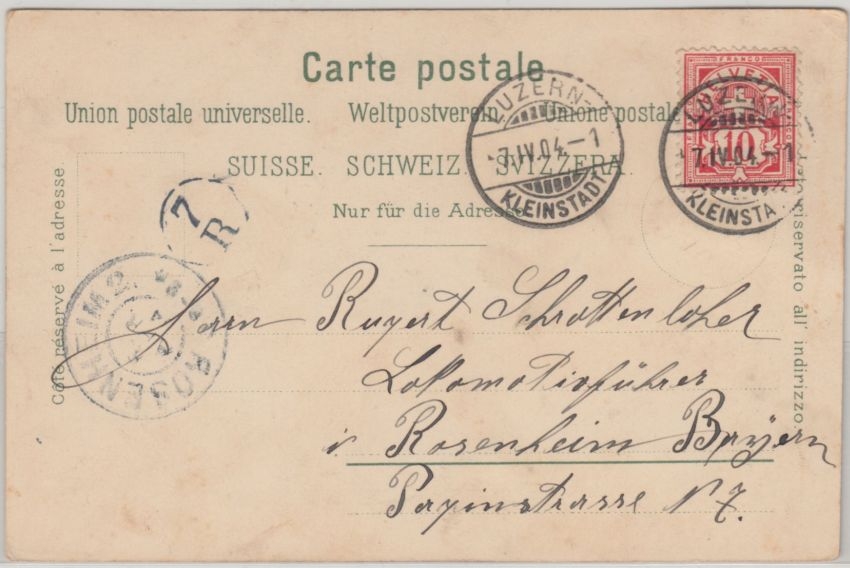 Carte postale
Union postale universelle. Weltpostverein. Unione postale
SUISSE. SCHWEIZ. SVIZZERA.
Nur für die Adresse
Côté réservé à l'adresse
riservato all' indirizzo.
FRANCO
HELVETIA
10
LUZERN
7.IV.04.-1
KLEINSTADT
LUZERN
7.IV.04.-1
KLEINSTA
7
R
ROSENHEIM 2
Herrn Rupert Schrottenloher
Lokomotivführer
i Rosenheim Bayern
Papinstrasse N 7.